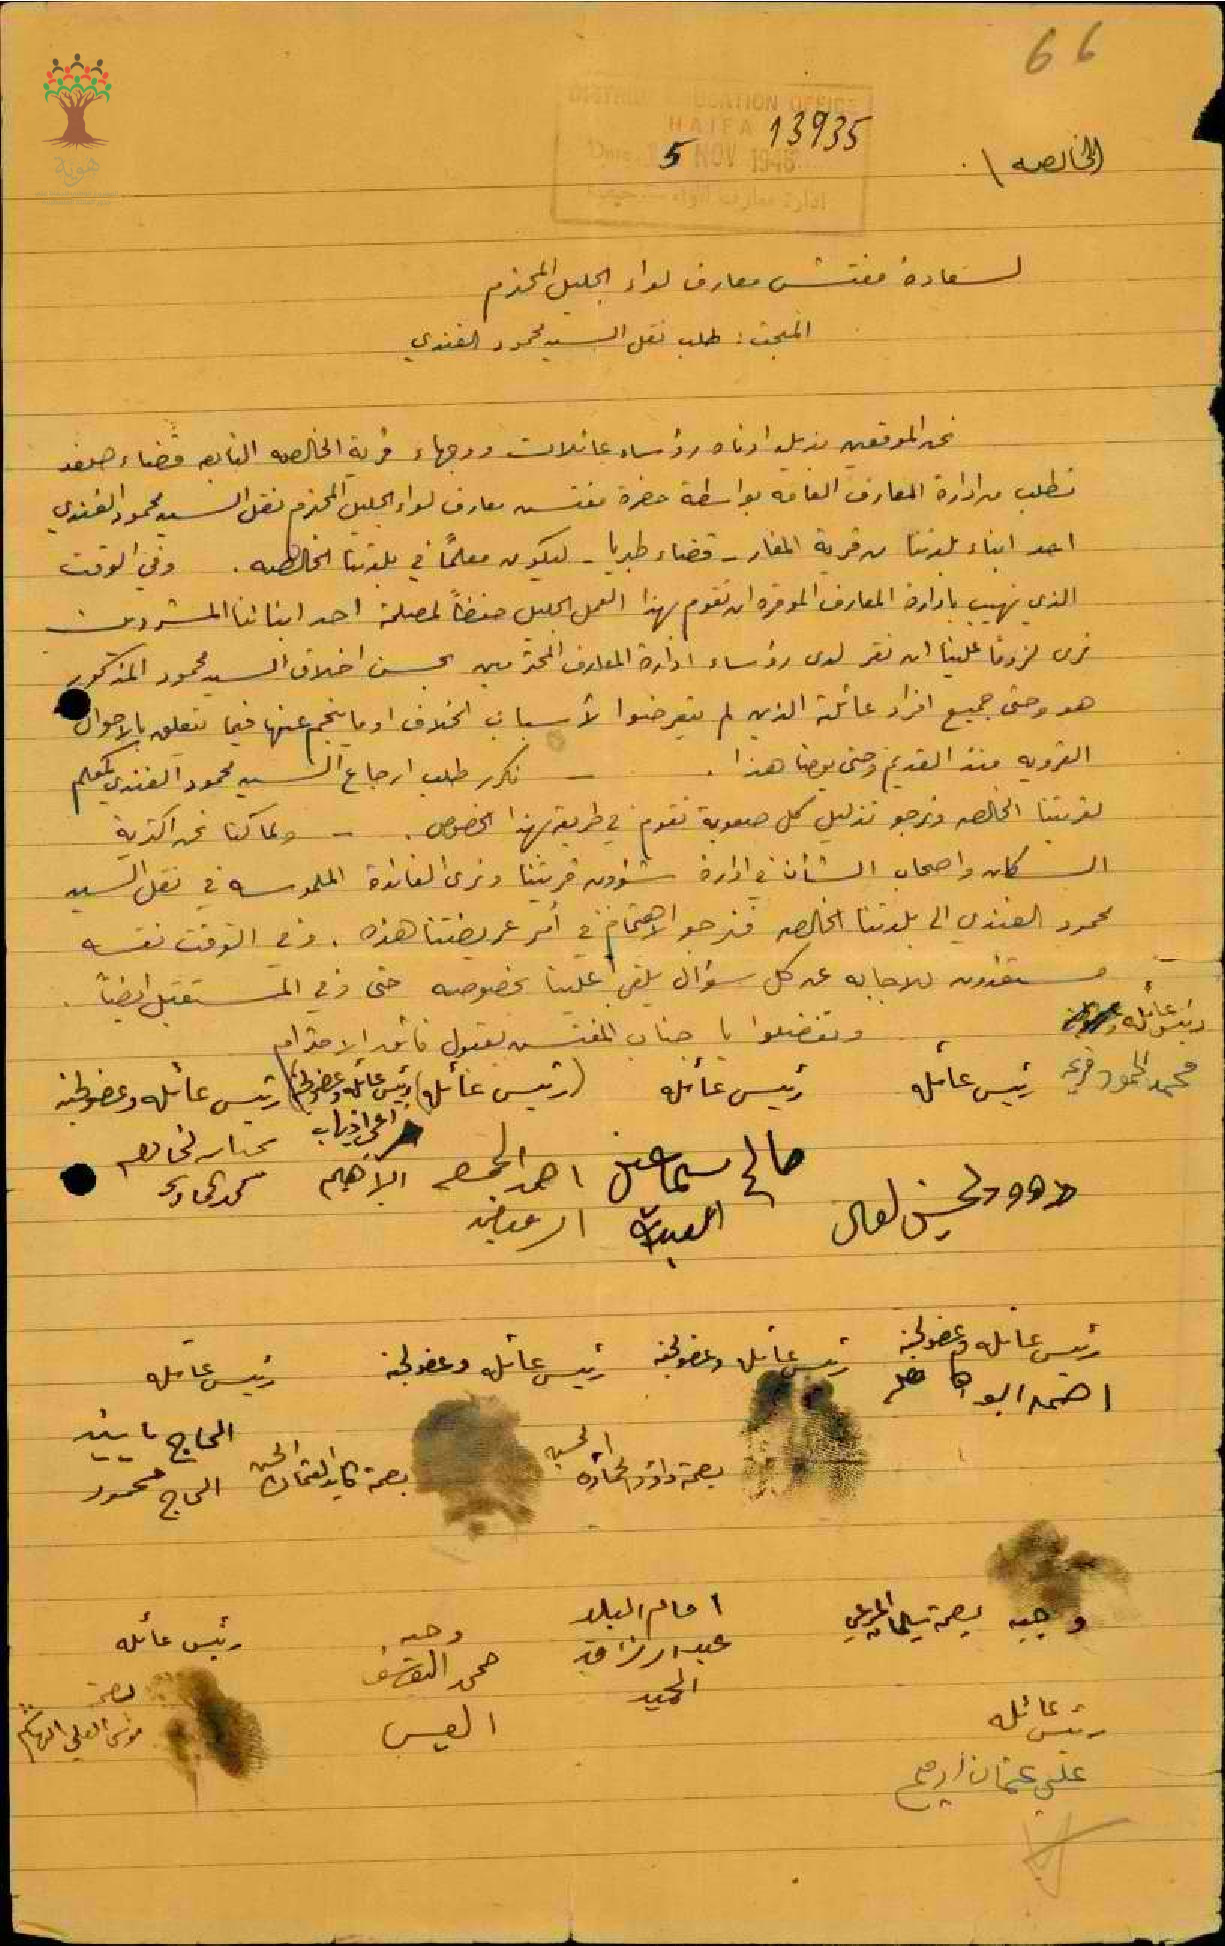 66
DISTRICT EDUCATION OFFICE
HAIFA
13935
5 NOV 1946
الخالصه /
هوية
لسعادة مفتش معارف لواء الجليل المحترم
المبحث : طلب نقل السيد محمود الفندي
نحن الموقعين بذيله ادناه رؤساء عائلات ووجهاء قرية الخالصه التابعه قضاء صفد
نطلب من ادارة المعارف العامه بواسطة حضرة مفتش معارف لواء الجليل المحترم نقل السيد محمود الفندي
احد ابناء بلدتنا من قرية المغار - قضاء طبريا - ليكون معلماً في بلدتنا الخالصه . وفي الوقت
الذي نهيب بادارة المعارف الموقره ان تقوم بهذا العمل الجليل حفظاً لمصلحة احد ابنائنا
نرى لزوماً علينا ان نقر لدى رؤساء ادارة المعارف المحترمين بحسن اخلاق السيد محمود المذكور
هو وحتى جميع افراد عائلة الذين لم يتعرضوا لأسباب الخلاف او ما ينجم عنها فيما يتعلق بالاحوال
القرويه منذ القديم وحتى يومنا هذا . - نكرر طلب ارجاع السيد محمود الفندي كمعلم
لقريتنا الخالصه ونرجو تذليل كل صعوبة تقوم في طريق بهذا الخصوص . - ولما كنا نحن اكثرية
السكان واصحاب الشأن في ادارة شؤون قريتنا ونرى الفائدة الملموسه في نقل السيد
محمود الفندي الى بلدتنا الخالصه فنرجو الاهتمام في أمر عريضتنا هذه . وفي الوقت نفسه
مستعدون للاجابه عن كل سؤال يلقى علينا بخصوصه حتى وفي المستقبل ايضاً .
وتفضلوا يا جناب المفتش بقبول فائق الاحترام
رئيس عائله
محمد الحمود
رئيس عائله رئيس عائله (رئيس عائله) (رئيس عائله وعضو لجنه) رئيس عائله وعضو لجنه
صالح سماعيل احمد
رئيس عائله وعضو لجنه رئيس عائله وعضو لجنه رئيس عائله وعضو لجنه رئيس عائله
احمد ابو
الحاج
بصمة داوود الحسين بصمة الحسن الحاج محمود
وجيه بصمة سليمان المرعي
امام البلد
عبد الرزاق
الحميد
وجيه
محمد اليوسف
العيسى
رئيس عائله
بصمة
موسى العلي
رئيس عائله
علي عثمان